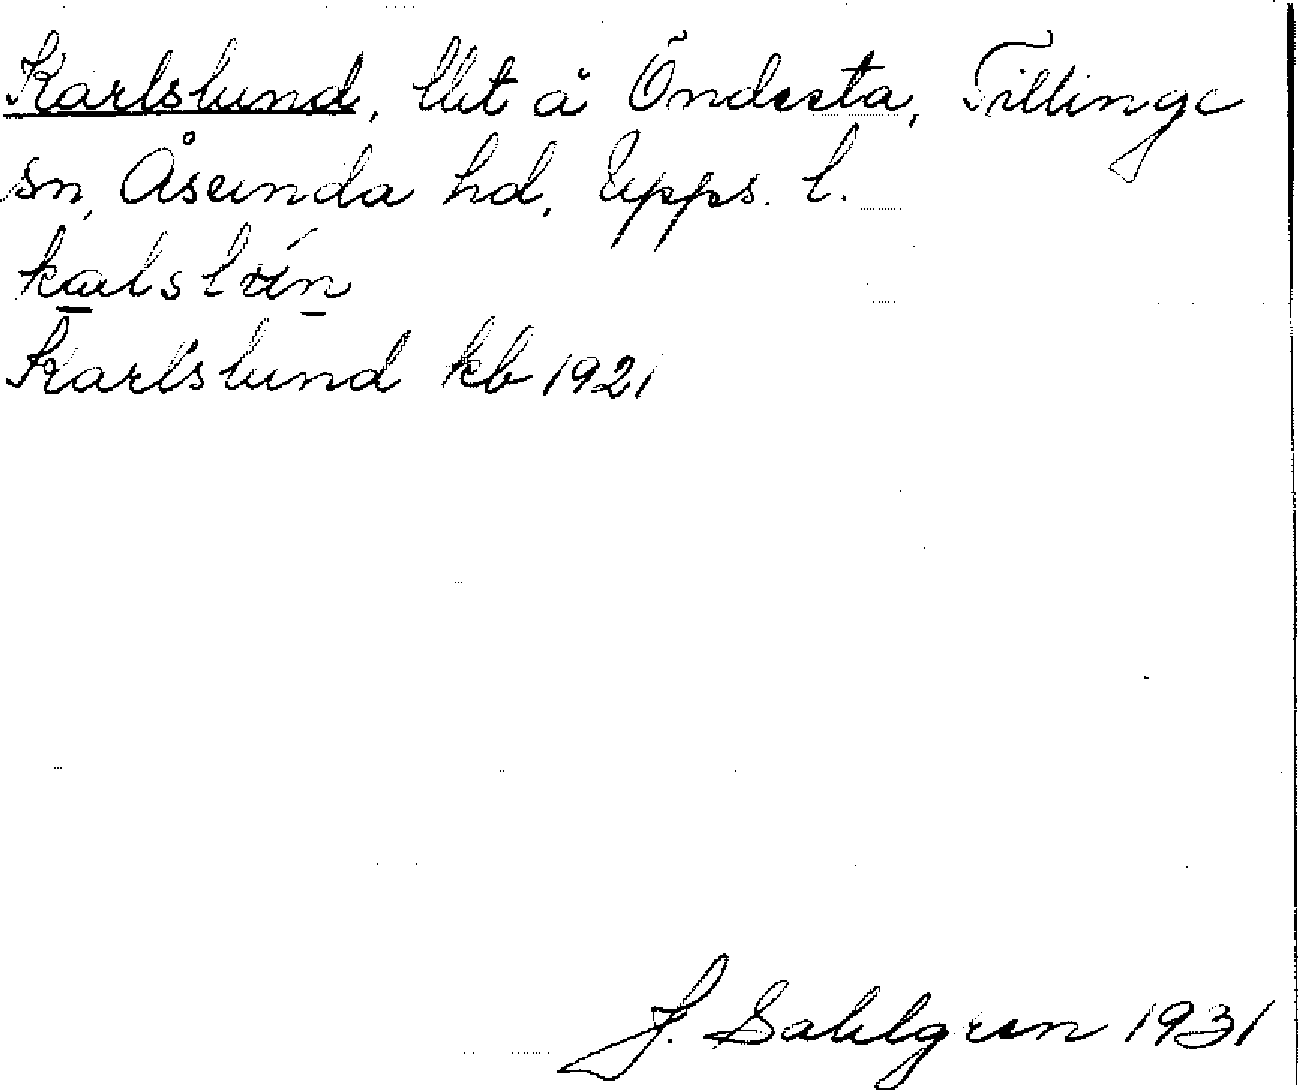 Karlslund, llit å Öndesta, Tillinge
sn, Åsunda hd, Upps. l.
Karlslund kb 1921
J. Sahlgren 1931